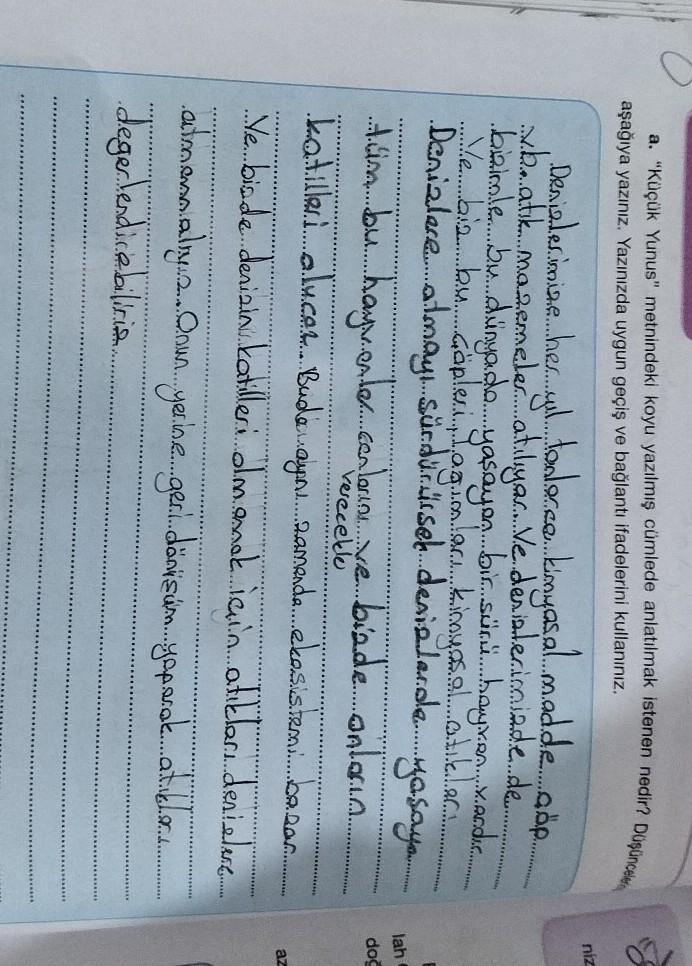 a. "Küçük Yunus" metnindeki koyu yazılmış cümlede anlatılmak istenen nedir? Düşünceleri
aşağıya yazınız. Yazınızda uygun geçiş ve bağlantı ifadelerini kullanınız.
Denizlerimize her yıl tonlarca kimyasal madde çöp
vb. atık mazemeler atılıyor. Ve denizlerimizde de
bizimle bu dünyada yaşayan bir sürü hayvan vardır.
Ve biz bu çöpleri, lağımları kimyasal atıkları
Denizlere atmayı sürdürürsek denizlerde yaşaya
tüm bu hayvanlar canlarını verecekle ve bizde onların
katilleri olucaz. Buda aynı zamanda ekosistemi bozar
Ve bizde denizin katilleri olmamak için atıkları denizlere
atmamalıyız. Onun yerine geri dönüşüm yaparak atıkları
değerlendirebiliriz.
niz
lah
doğ
az